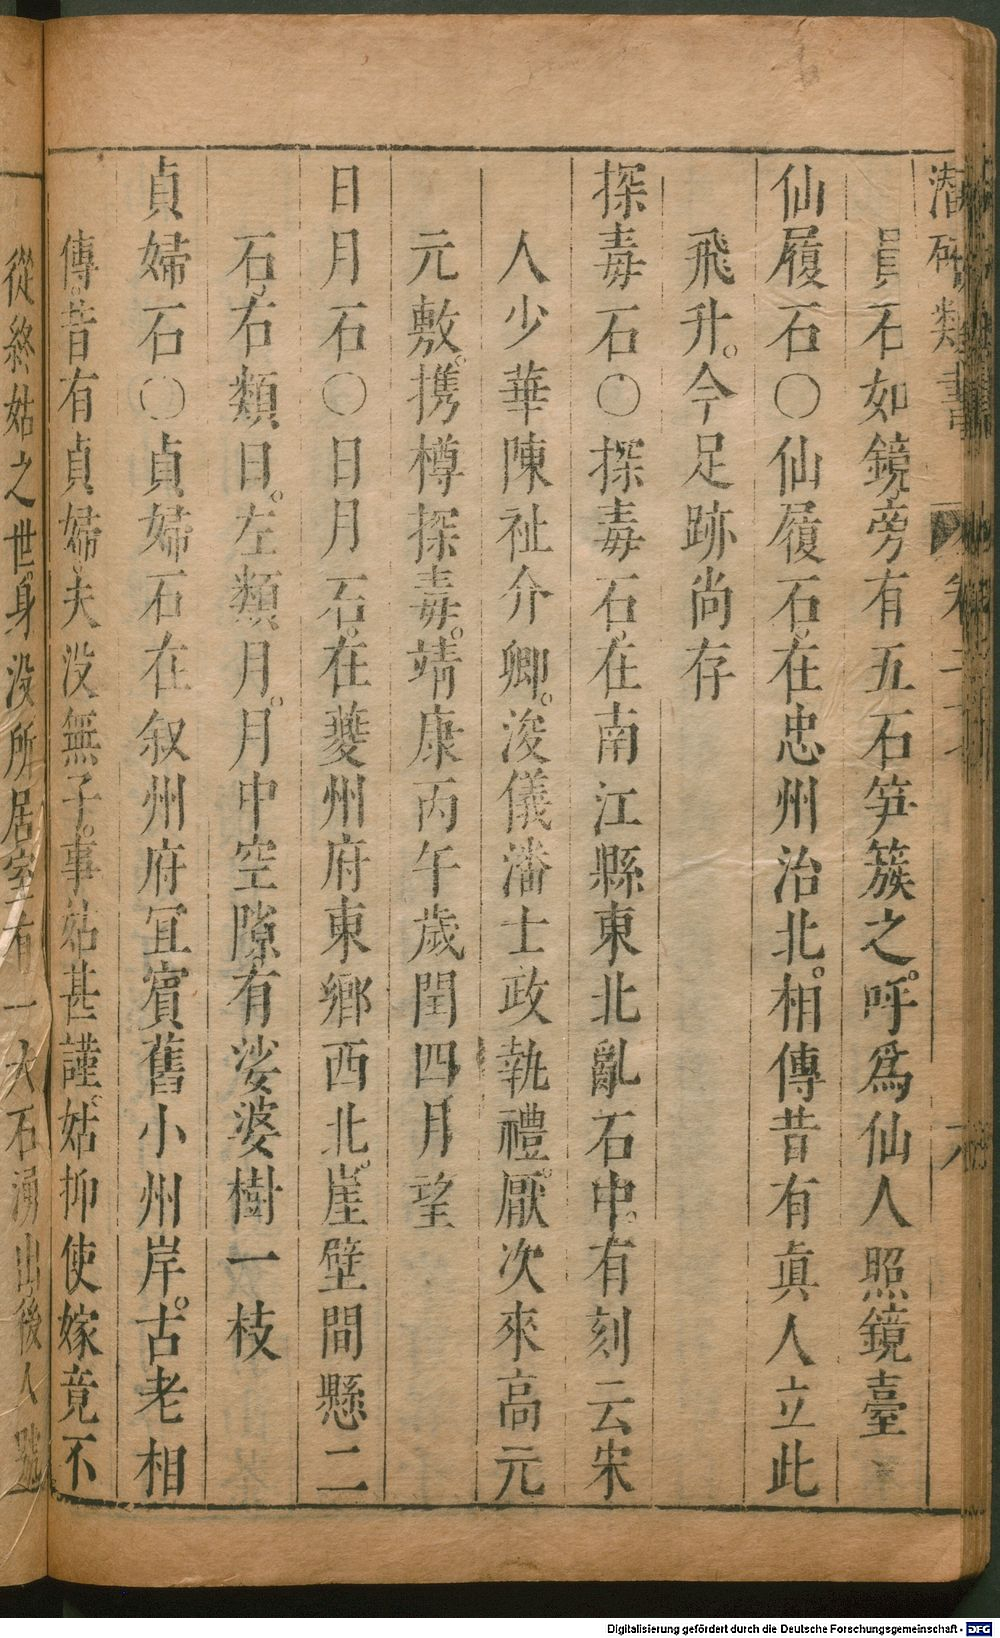 潛確類書 卷二十 六
員石如鏡旁有五石笋簇之。呼爲仙人照鏡臺
仙履石〇仙履石。在忠州治北。相傳昔有眞人立此
飛升。今足跡尚存
探毒石〇探毒石。在南江縣東北亂石中。有刻云宋
人少華陳祉介卿。浚儀潘士政執禮。厭次來高元
元敷。携樽探毒。靖康丙午歲閏四月望
日月石〇日月石。在夔州府東鄉西北。崖壁間懸二
石。右類日。左類月。月中空隙。有娑婆樹一枝
貞婦石〇貞婦石在叙州府宜賓舊小州岸。古老相
傳。昔有貞婦。夫没無子。事姑甚謹。姑抑使嫁竟不
從終姑之世。身没所居室有一大石湧出後人號
Digitalisierung gefördert durch die Deutsche Forschungsgemeinschaft - DFG